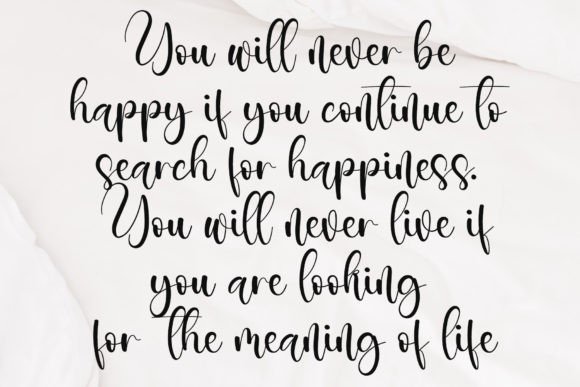 You will never be
happy if you continue to
search for happiness.
You will never live if
you are looking
for the meaning of life